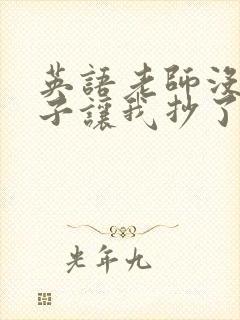 英語老師沒
子讓我抄了
光年九